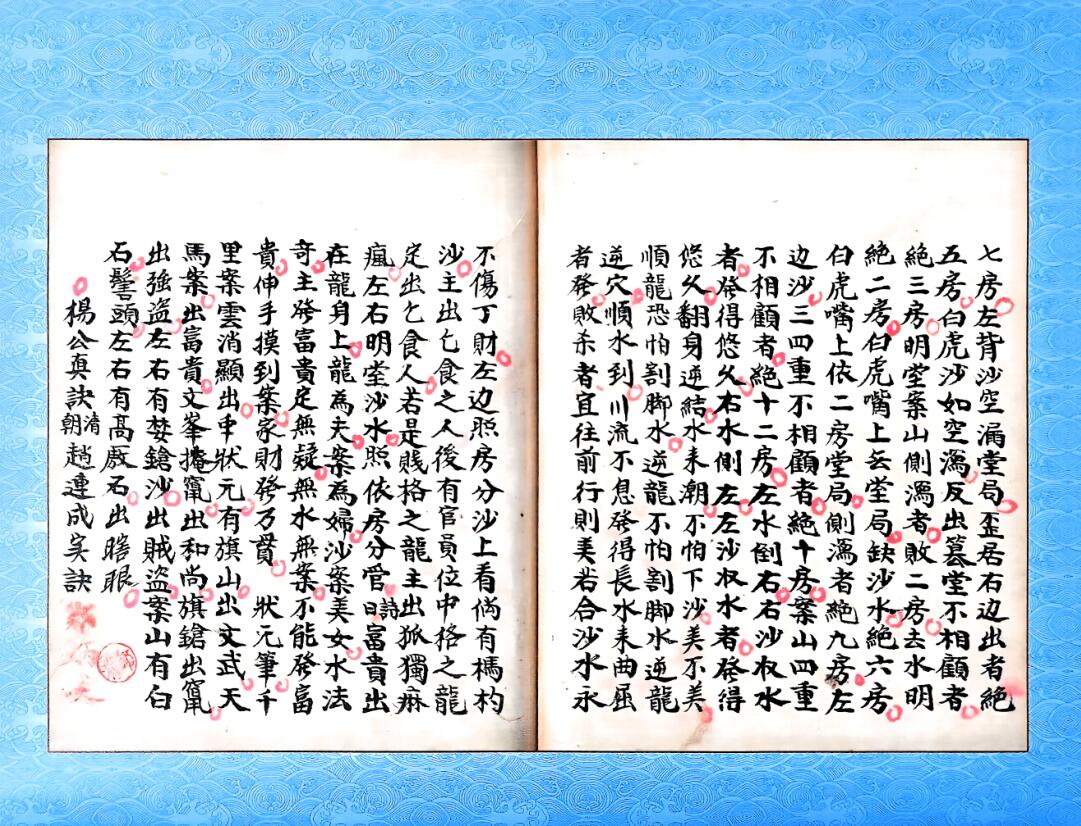 七房左背沙空漏堂局歪居右边出者絕
五房白虎沙如空瀉反出墓堂不相顧者
絕三房明堂案山側瀉者敗二房去水明
絕二房白虎嘴上无堂局缺沙水絕六房
白虎嘴上依二房堂局側瀉者絕九房左
边沙三四重不相顧者絕十房案山四重
不相顧者絕十二房左水倒右右沙收水
者發得悠久右水側左左沙收水者發得
悠久翻身逆結水来潮不怕下沙美不美
順龍恐怕割脚水逆龍不怕割脚水逆龍
逆穴順水到川流不息發得長水来曲屈
者發敗杀者宜往前行則美若合沙水永
不傷丁財左边照房分沙上看倘有檽杓
沙主出乞食之人後有官員位中格之龍
定出乞食人若是賤格之龍主出孤獨痳
瘋左右明堂沙水照依房分管 詩曰富貴出
在龍身上龍為夫案為婦沙案美女水法
奇主發富貴定無疑無水無案不能發富
貴伸手摸到案家財發万貫 狀元筆千
里案雲消顯出申狀元有旗山出文武天
馬案出富貴文峯捲竄出和尚旗鎗出竄
出強盗左右有埜鎗沙出賊盗案山有白
石髻頭左右有高厥石出瞎眼
楊公真訣清朝趙連成实訣